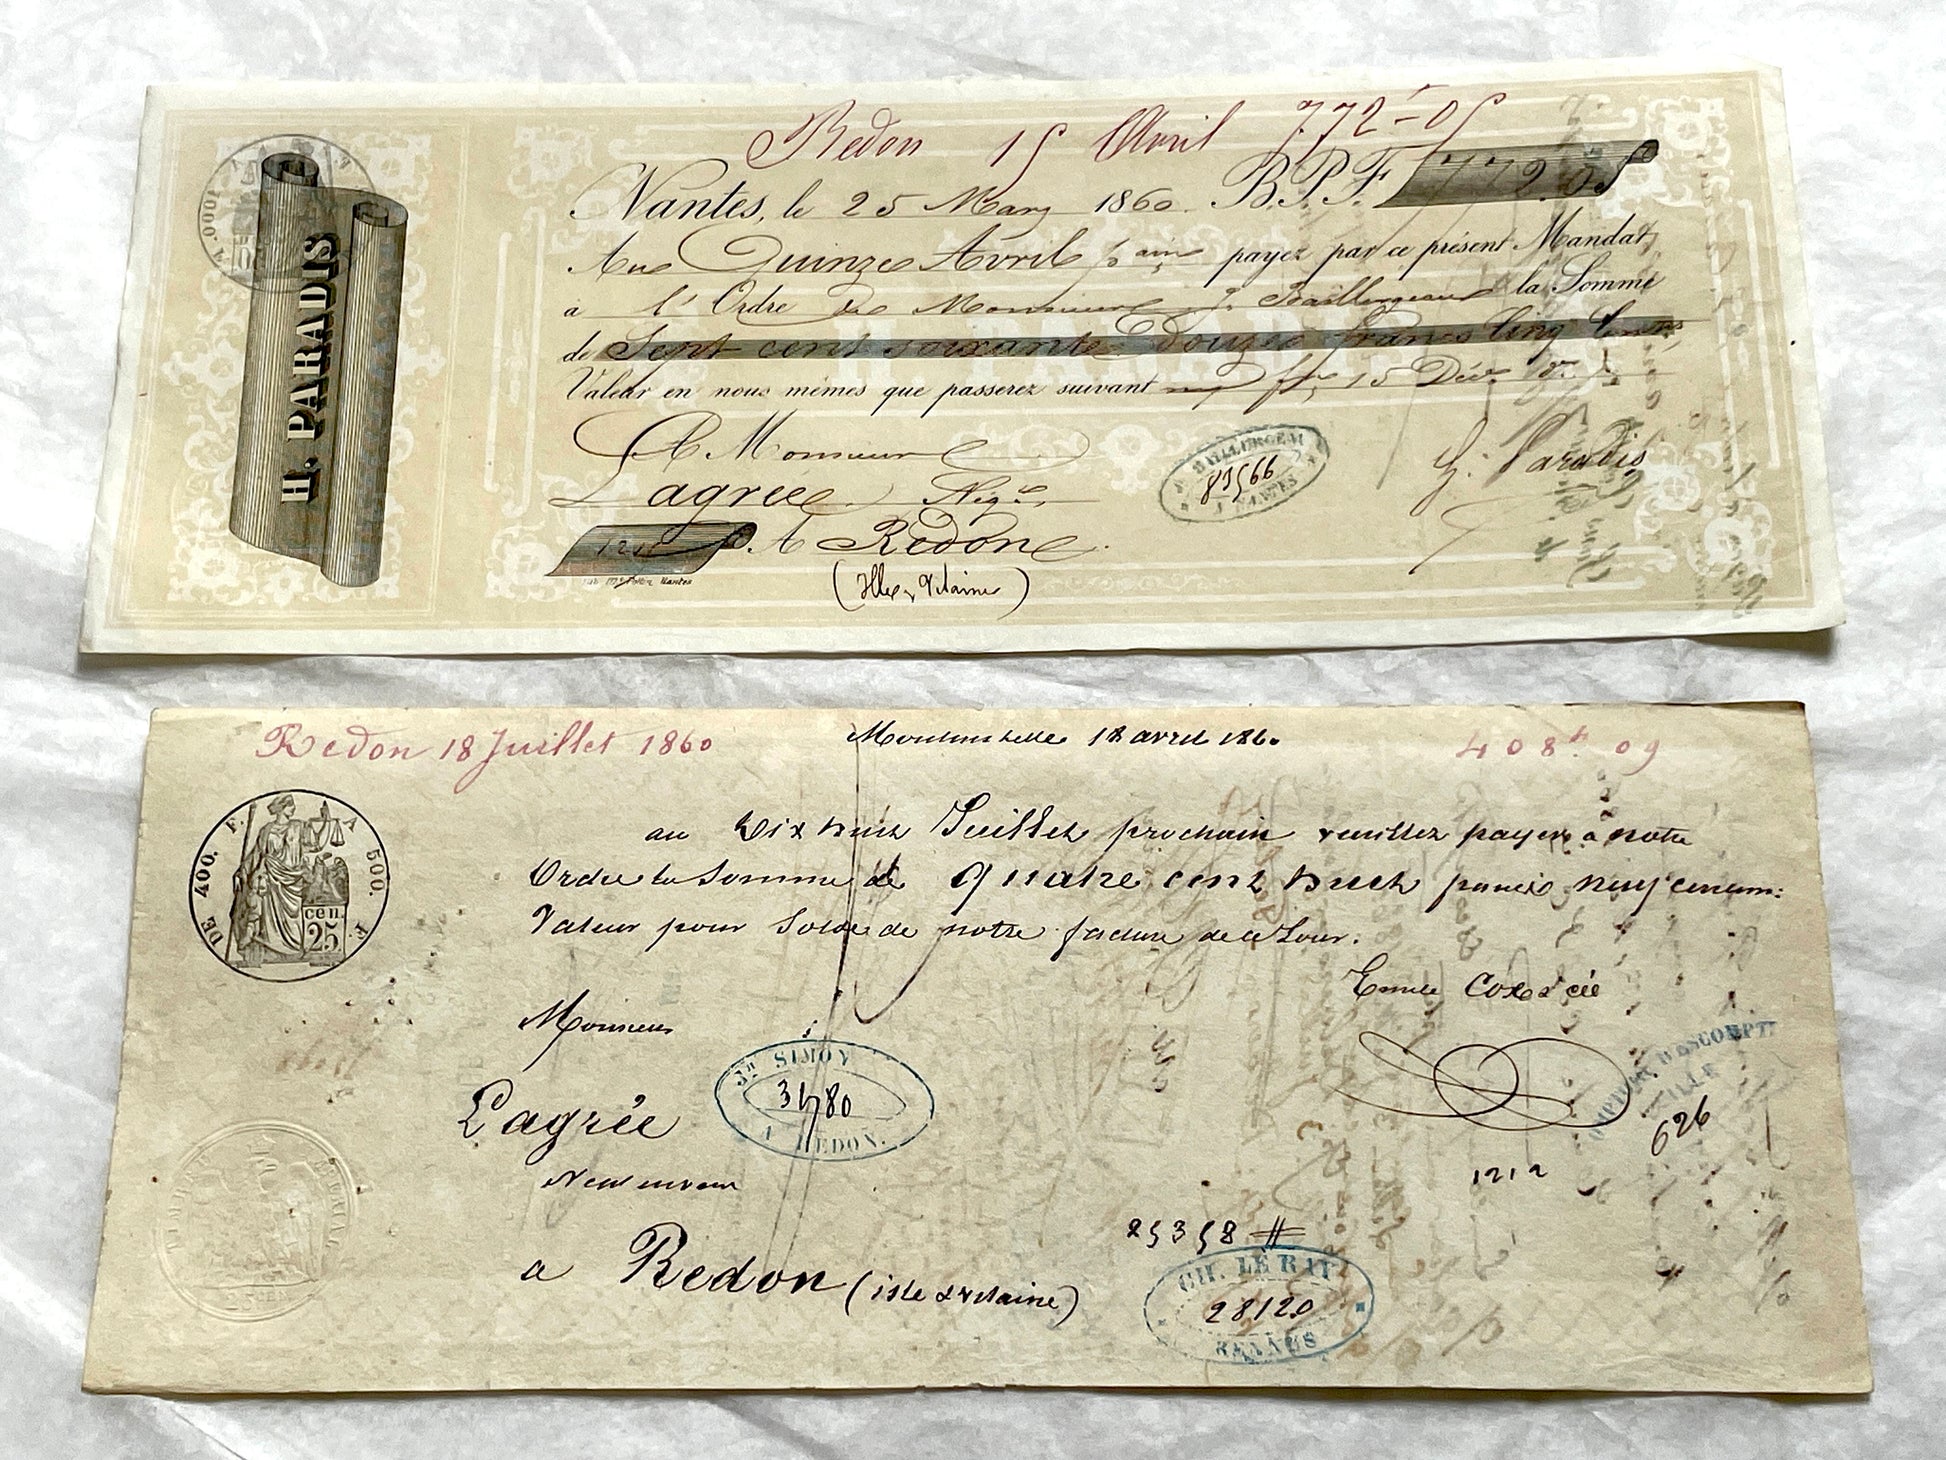 Redon 15 Avril 772f-05
Nantes, le 25 Mars 1860. B.P.F. 772.05
Au Quinze Avril pain payez par ce présent Mandat
à l'Ordre de Monsieur J. Baillergeau la Somme
de Sept cent soixante Douze francs Cinq Cent
Valeur en nous mêmes que passerez suivant
H. PARADIS
A Monsieur
Lagree Negt
A Redon
(Ille & Vilaine)
BAILLERGEAU
81566
A NANTES
H. Paradis
A. 1000
Redon 18 Juillet 1860
18 avril 1860
408f. 09
au Dix huit Juillet prochain veuillez payer à notre
Ordre la Somme de quatre cent huit francs neuf centimes
Valeur pour Solde de notre facture de ce Jour.
DE 400. F. A 500. F.
cen.
25
Emile
Monsieur
Lagrée
Jn SIMON
3480
A REDON.
a Redon (isle & vilaine)
COMPTOIR D'ESCOMPTE
LILLE
626
1212
25358 #
CH. LE RAY
28120
RENNES